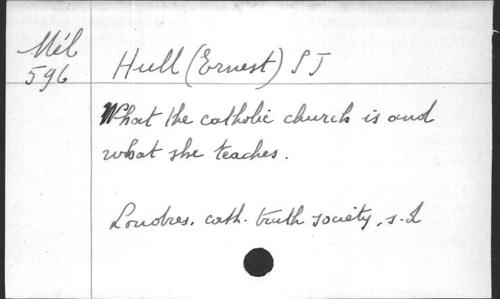 Mél
596
Hull (Ernest) S J
What the catholic church is and
what she teaches.
Londres. cath. truth society, s. d